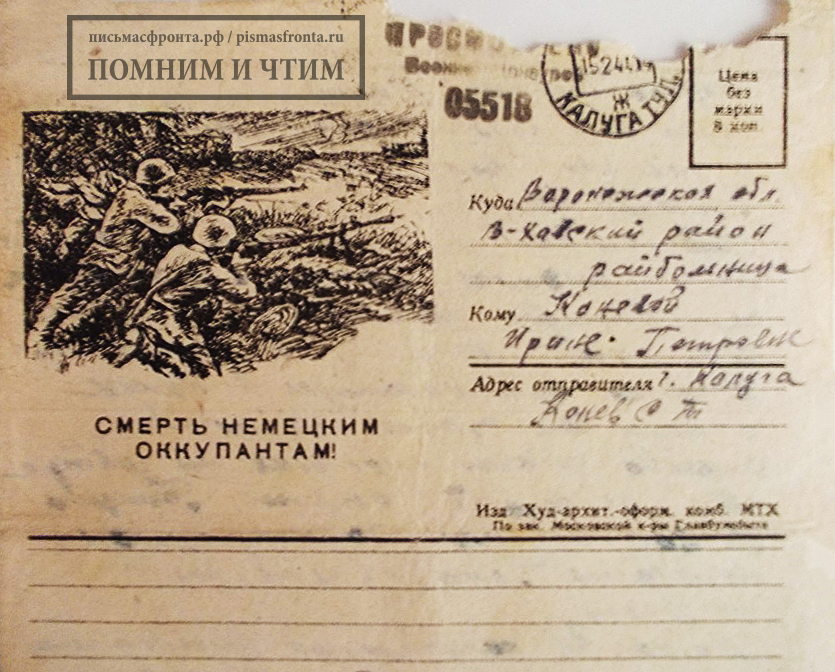 письмасфронта.рф / pismasfronta.ru
ПОМНИМ И ЧТИМ
05518
КАЛУГА ТУЛ.
Ж
Цена
без
марки
8 коп.
Куда Воронежская обл.
В-Хавский район
райбольница
Кому Коневой
Ирине Петровне
Адрес отправителя г. Калуга
Конев С Т
СМЕРТЬ НЕМЕЦКИМ
ОККУПАНТАМ!
Изд Худ-архит.-оформ. комб. МТХ
По зак. Московской к-ры Главбумсбыта